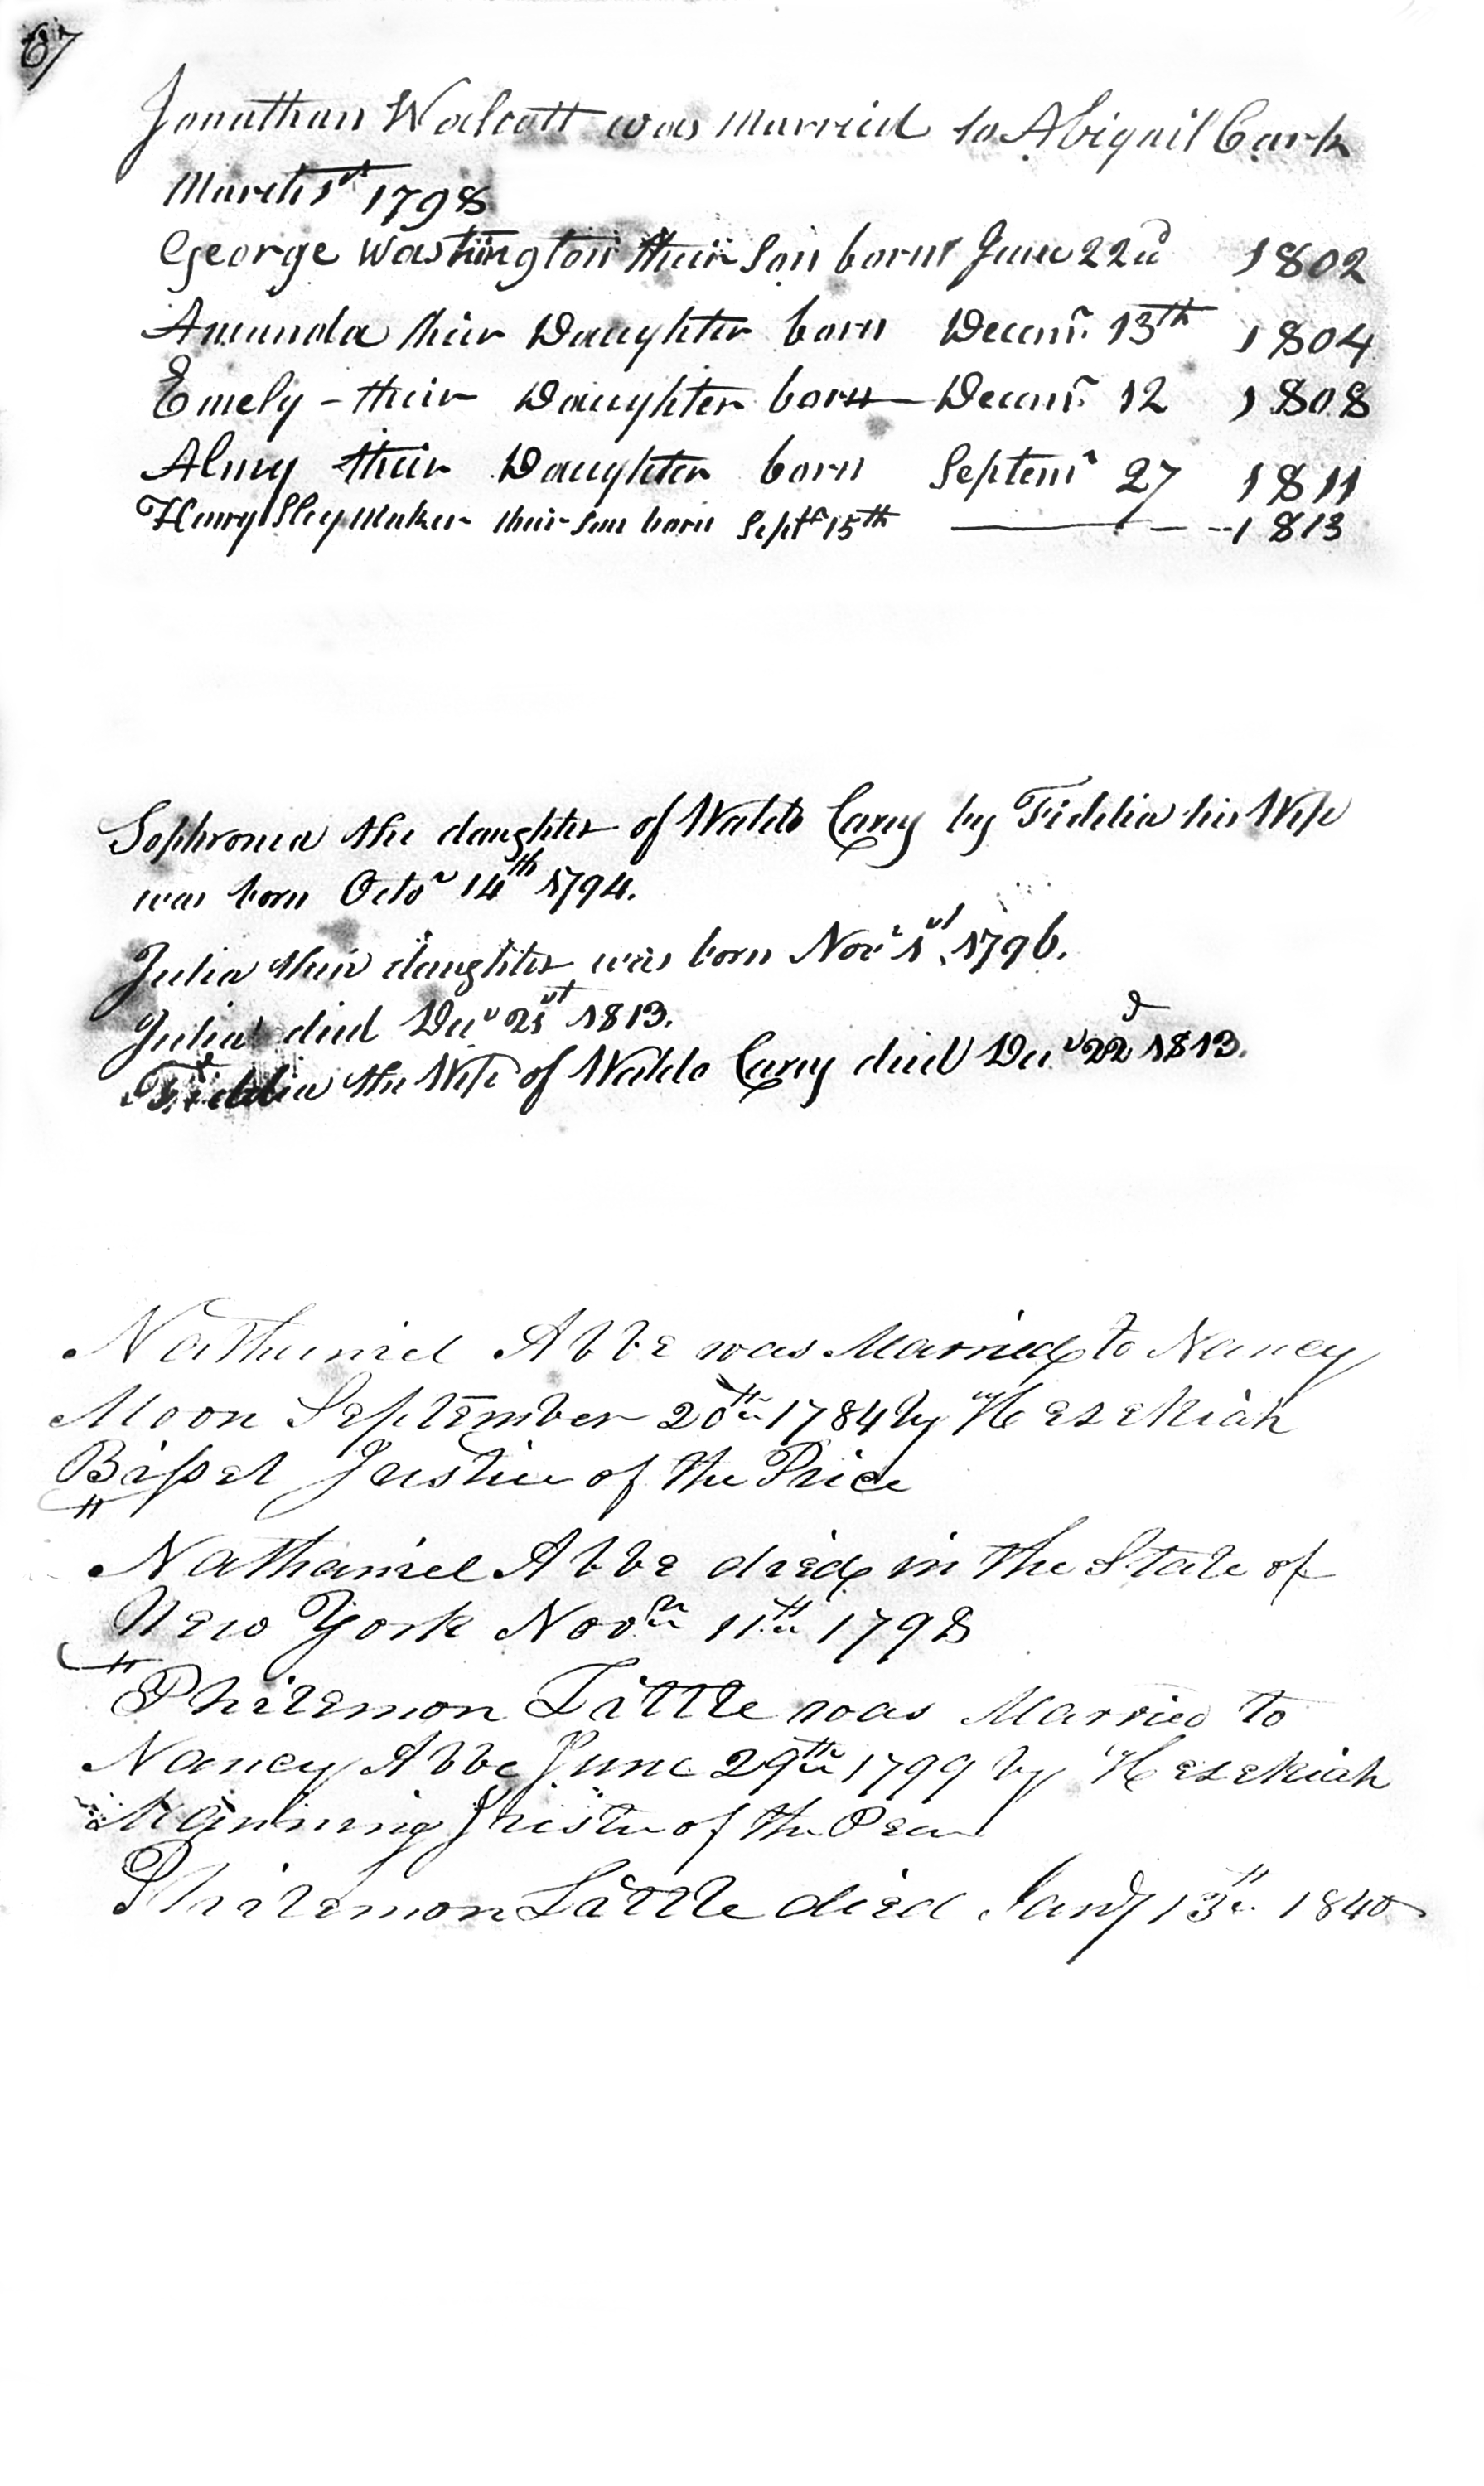 67
Jonathan Walcott was Married to Abigail Cark
March 1st 1798
George Washington their Son born June 22d 1802
Amanda their Daughter born Decemr. 13th 1804
Emely - their Daughter born Decemr. 12 1808
Almy their Daughter born Septemr 27 1811
Henry Sleymaker their Son born Septr 15th 1813
Sophronia the daughter of Waldo Cary by Fidelia his Wife
was born Octor 14th 1794.
Julia their daughter was born Novr 1st 1796.
Julia died Decr 21st 1813.
Fidelia the Wife of Waldo Cary died Decr 22d 1813.
Nathaniel Abbe was Married to Nancy
Moon September 20th 1784 by Hezekiah
Bissel Justice of the Piece
Nathaniel Abbe died in the State of
New York Novm 11th 1798
Philemon Little was Married to
Nancy Abbe June 29th 1799 by Hezekiah
Manning Justice of the Peace
Philemon Little died Jany 13th 1840